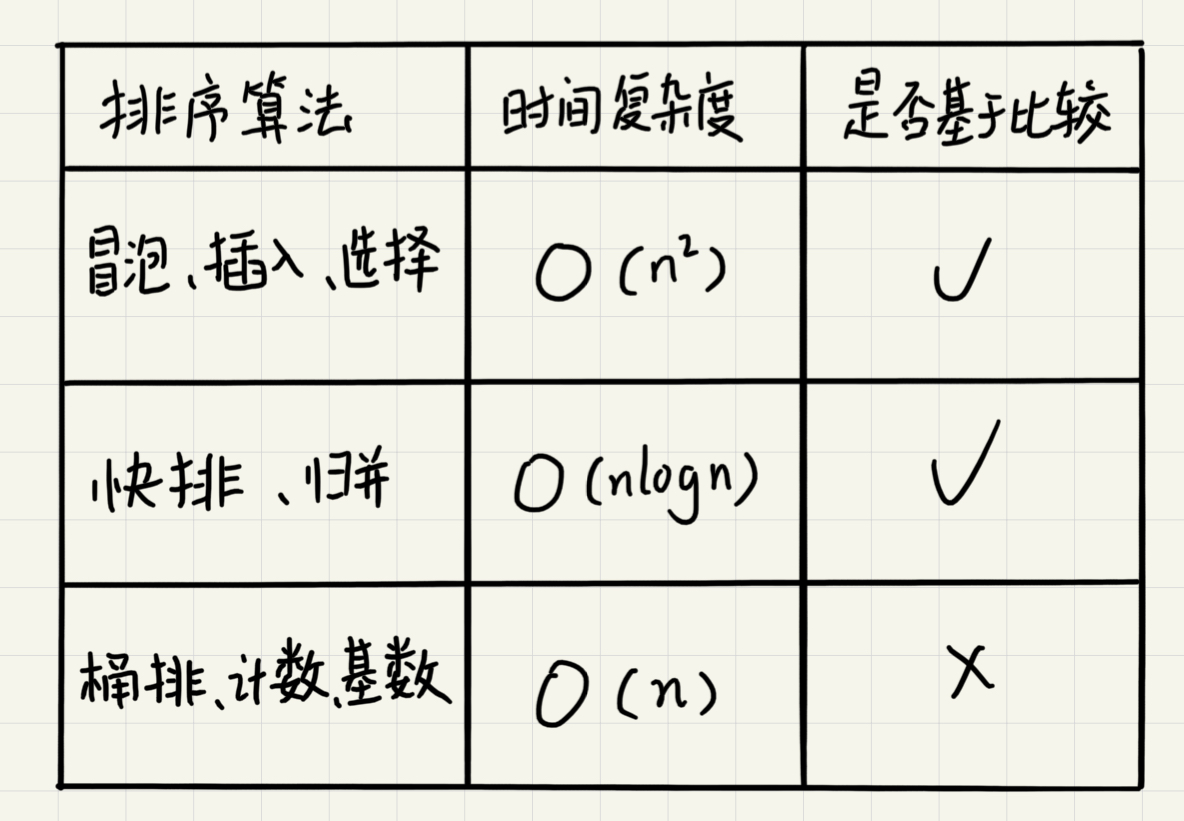 排序算法 时间复杂度 是否基于比较
冒泡、插入、选择 O(n²) ✓
快排、归并 O(nlogn) ✓
桶排、计数、基数 O(n) ×